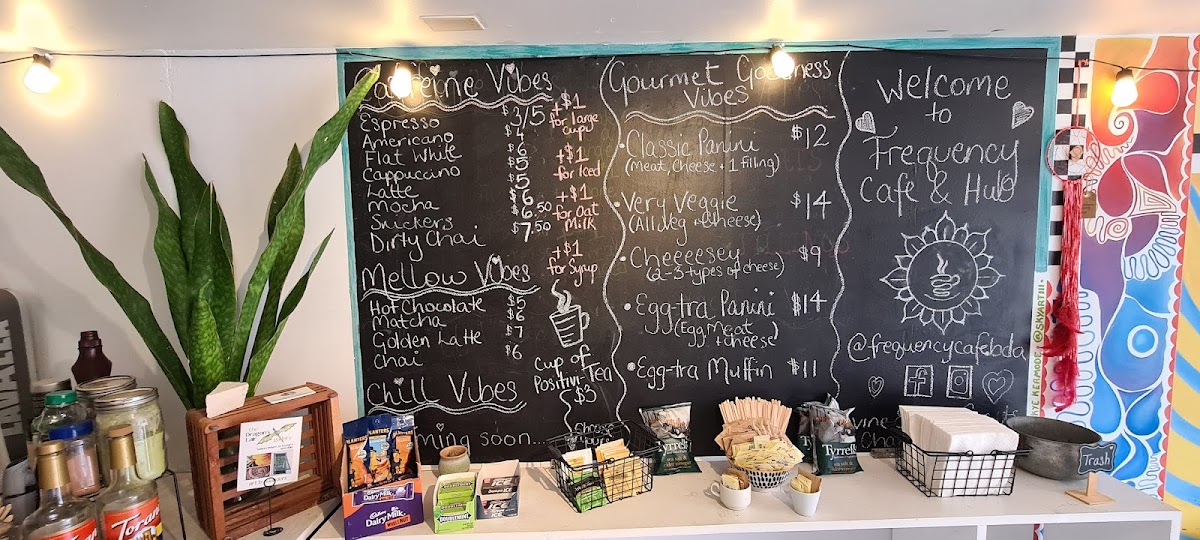 Caffeine Vibes
Espresso $3/5
Americano $4
Flat White $6
Cappuccino $5
Latte $5
Mocha $6
Snickers $6.50
Dirty Chai $7.50
+$1
for large
cup
+$1
for Iced
+$1
for Oat
Milk
+$1
for Syrup
Mellow Vibes
Hot Chocolate $5
Matcha $6
Golden Latte $7
Chai $6
Cup of
Positivi-Tea
$3
Choose
Chill Vibes
coming soon...
Gourmet Goodness
Vibes
Classic Panini $12
(Meat, Cheese + 1 filling)
Very Veggie $14
(All veg + cheese)
Cheeeesey $9
(2-3 types of cheese)
Egg-tra Panini $14
(Egg, meat
+ cheese)
Egg-tra Muffin $11
Welcome
to
Frequency
Cafe & Hub
@frequencycafebda
@SKYARTIII
The
Dragon's
PLANTERS
Cadbury
Dairy Milk
DOUBLEMINT
ICE
Tyrrells
Tyrrells
Trash
Torani